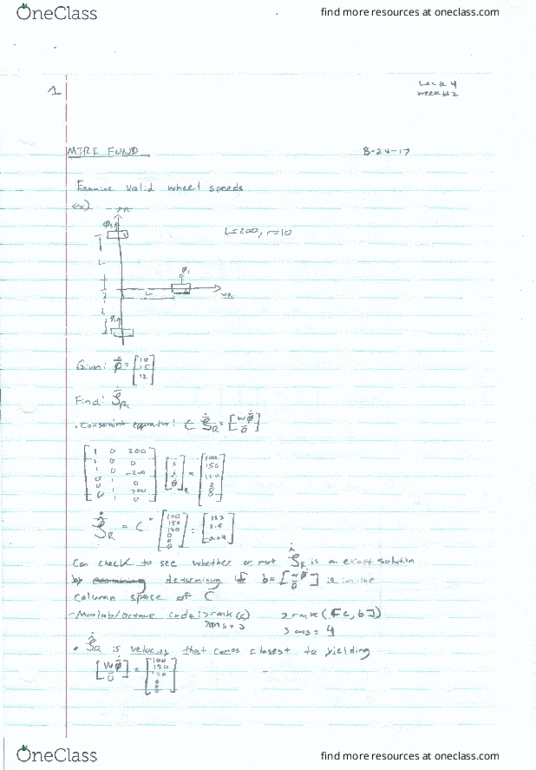 OneClass
find more resources at oneclass.com
1
Lec # 4
week #2
MTRE FUND
8-24-17
Examine valid wheel speeds
ex)
L=200, r=10
L
Given: φ = [10 15 12]
Find: ξR
• Constraint equation: C ξR = [wφ 0]
1 0 200
1 0 0
1 0 -200
0 1 0
100
150
120
0
0
0
ξR = C
100
150
120
0
0
0
Can check to see whether or not ξR is an exact solution
by determining if b = [wφ 0] is in the
column space of C
- Matlab/Octave code: >rank(c) >rank([c, b])
>ans = 3 >ans = 4
• ξR is velocity that comes closest to yielding
[wφ 0] =
100
150
120
0
0
0
OneClass
find more resources at oneclass.com